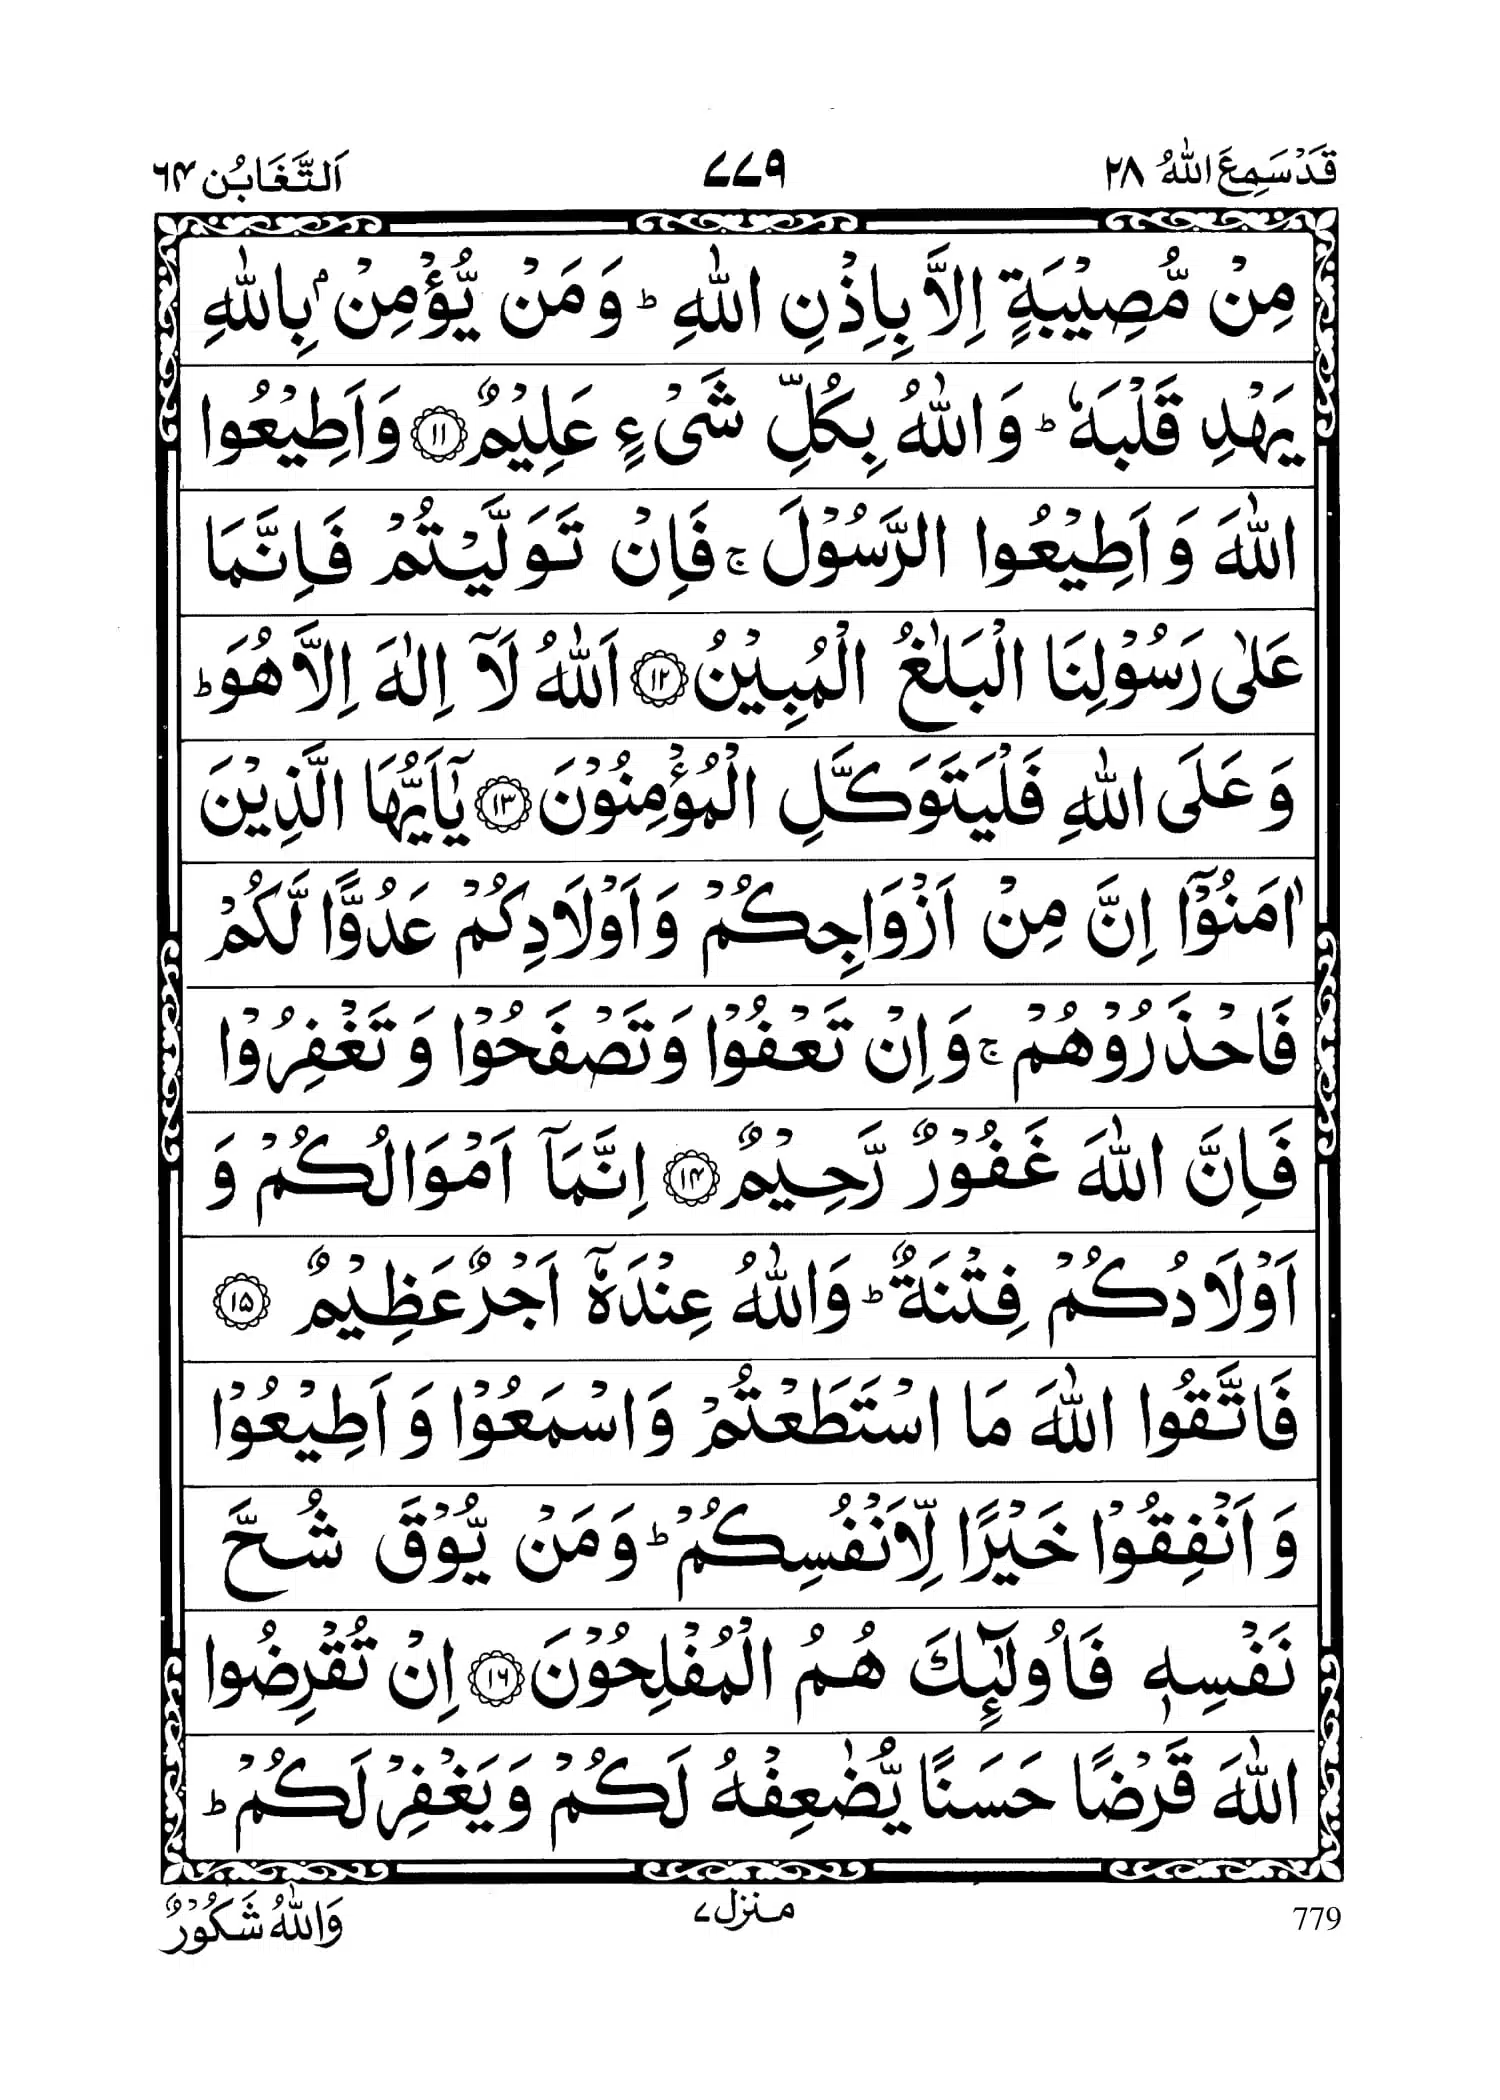 قَدْ سَمِعَ اللّٰهُ ۲۸
۷۷۹
اَلتَّغَابُن ۶۴
مِنْ مُّصِيْبَةٍ اِلَّا بِاِذْنِ اللّٰهِ ؕ وَ مَنْ يُّؤْمِنْۢ بِاللّٰهِ
يَهْدِ قَلْبَهٗ ؕ وَ اللّٰهُ بِكُلِّ شَيْءٍ عَلِيْمٌ ﴿۱۱﴾ وَ اَطِيْعُوا
اللّٰهَ وَ اَطِيْعُوا الرَّسُوْلَ ۚ فَاِنْ تَوَلَّيْتُمْ فَاِنَّمَا
عَلٰى رَسُوْلِنَا الْبَلٰغُ الْمُبِيْنُ ﴿۱۲﴾ اَللّٰهُ لَاۤ اِلٰهَ اِلَّا هُوَ ؕ
وَ عَلَى اللّٰهِ فَلْيَتَوَكَّلِ الْمُؤْمِنُوْنَ ﴿۱۳﴾ يٰۤاَيُّهَا الَّذِيْنَ
اٰمَنُوْۤا اِنَّ مِنْ اَزْوَاجِكُمْ وَ اَوْلَادِكُمْ عَدُوًّا لَّكُمْ
فَاحْذَرُوْهُمْ ۚ وَ اِنْ تَعْفُوْا وَ تَصْفَحُوْا وَ تَغْفِرُوْا
فَاِنَّ اللّٰهَ غَفُوْرٌ رَّحِيْمٌ ﴿۱۴﴾ اِنَّمَاۤ اَمْوَالُكُمْ وَ
اَوْلَادُكُمْ فِتْنَةٌ ؕ وَ اللّٰهُ عِنْدَهٗۤ اَجْرٌ عَظِيْمٌ ﴿۱۵﴾
فَاتَّقُوا اللّٰهَ مَا اسْتَطَعْتُمْ وَ اسْمَعُوْا وَ اَطِيْعُوْا
وَ اَنْفِقُوْا خَيْرًا لِّاَنْفُسِكُمْ ؕ وَ مَنْ يُّوْقَ شُحَّ
نَفْسِهٖ فَاُولٰٓئِكَ هُمُ الْمُفْلِحُوْنَ ﴿۱۶﴾ اِنْ تُقْرِضُوا
اللّٰهَ قَرْضًا حَسَنًا يُّضٰعِفْهُ لَكُمْ وَ يَغْفِرْ لَكُمْ ؕ
779
منزل ۷
وَاللّٰهُ شَكُوْرٌ